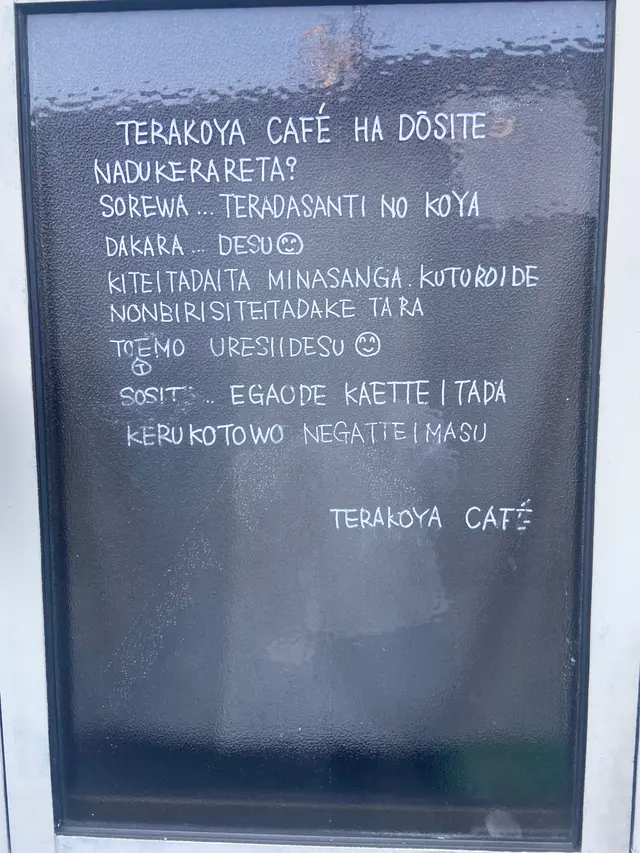 TERAKOYA CAFÉ HA DŌSITE
NADUKERARETA?
SOREWA ... TERADASANTI NO KOYA
DAKARA ... DESU☺
KITEITADAITA MINASANGA. KUTUROIDE
NONBIRISITEITADAKETARA
TOEMO URESIIDESU ☺
T
SOSITE ... EGAODE KAETTEITADA
KERUKOTOWO NEGATTEIMASU
TERAKOYA CAFÉ